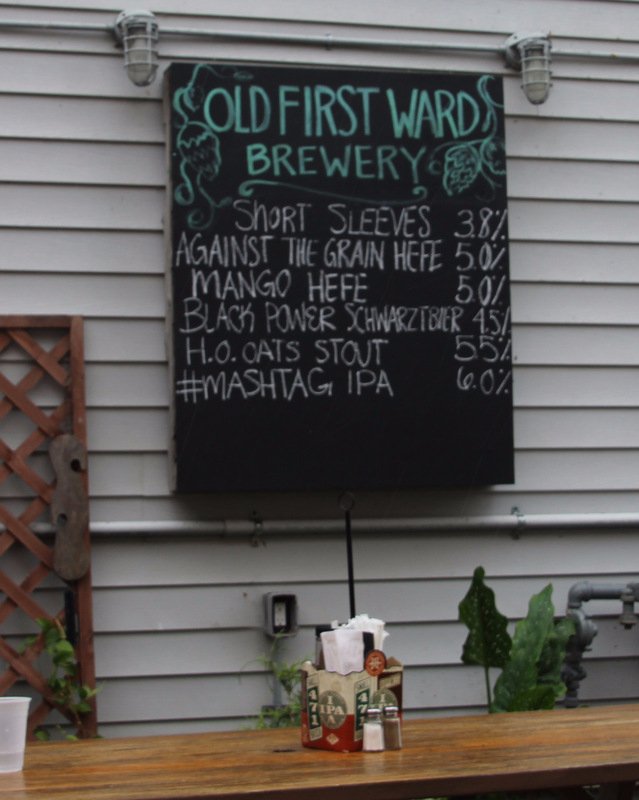 OLD FIRST WARD
BREWERY
SHORT SLEEVES 3.8%
AGAINST THE GRAIN HEFE 5.0%
MANGO HEFE 5.0%
BLACK POWER SCHWARZTBIER 4.5%
H.O. OATS STOUT 5.5%
#MASHTAG IPA 6.0%
471
IPA
471